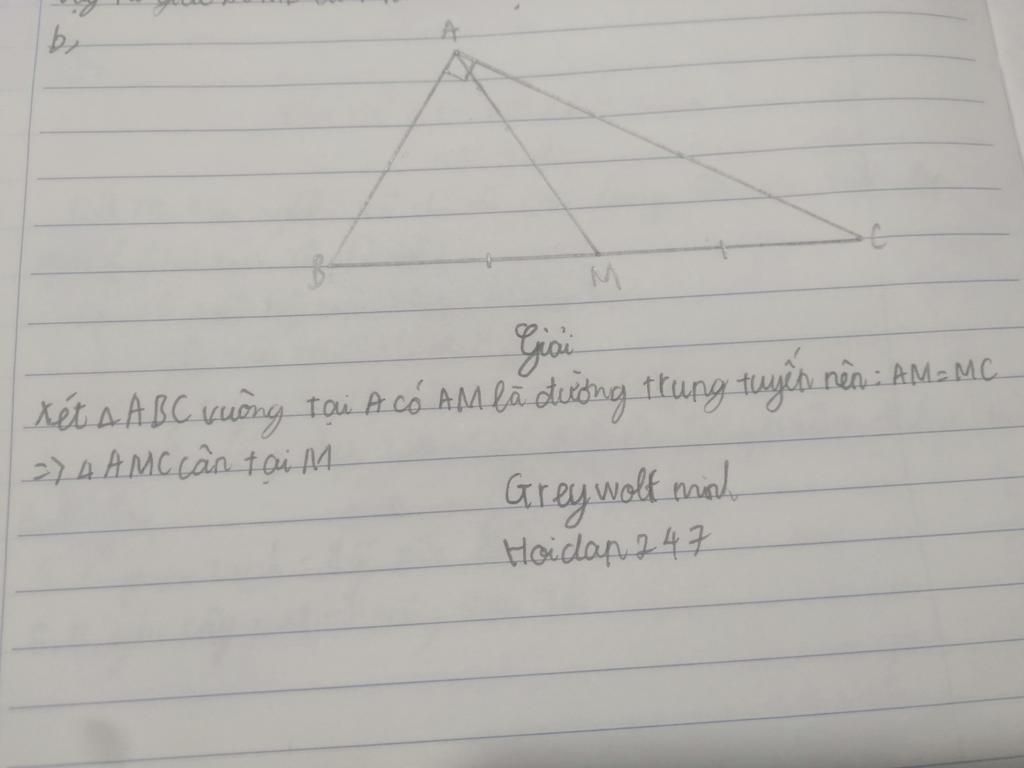 b,
A
B
M
C
Giải
Xét △ABC vuông tại A có AM là đường trung tuyến nên: AM=MC
=> △AMC cân tại M
Greywolf minh
Hoidap247